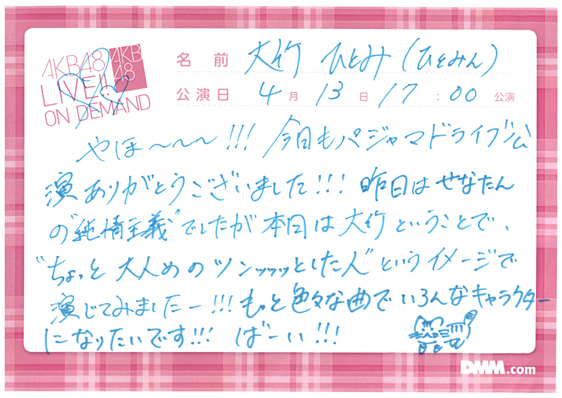 AKB48
LIVE!!
ON DEMAND
AKB
48
名前 大竹 ひとみ(ひとみん)
公演日 4月13日17:00公演
やほ〜〜〜!!! 今日もパジャマドライブ公
演ありがとうございました!!! 昨日はせなたん
の"純情主義"でしたが本日は大竹ということで、
"ちょっと大人めのツンッッッとした人"というイメージで
演じてみましたー!!! もっと色々な曲でいろんなキャラクター
になりたいです!!! ばーい!!!
DMM.com